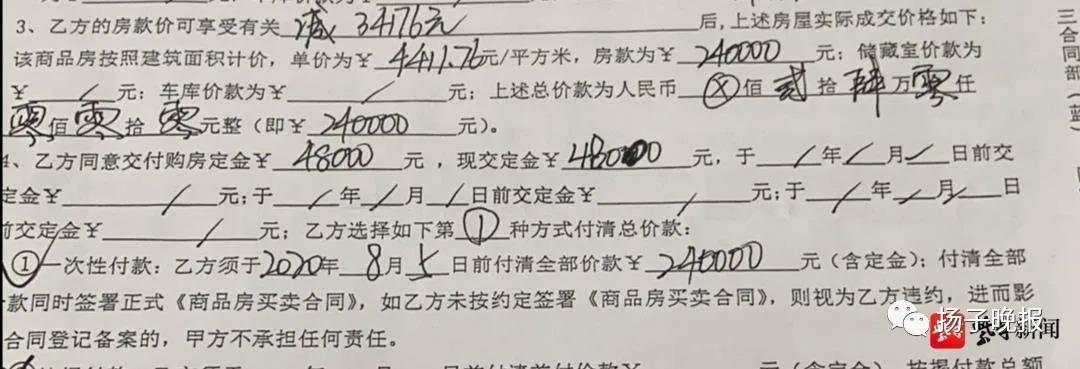 3、乙方的房款价可享受有关 减 34176元 后,上述房屋实际成交价格如下:
该商品房按照建筑面积计价,单价为¥ 4411.76元/平方米,房款为¥ 240000 元;储藏室价款为
¥ / 元;车库价款为¥ / 元;上述总价款为人民币 ⊗佰 贰 拾 肆万零仟
零佰零拾零元整(即¥ 240000 元)。
4、乙方同意交付购房定金¥ 48000 元,现交定金¥48000 元,于 / 年 / 月 / 日前交
定金¥ / 元;于 / 年 / 月 / 日前交定金¥ / 元;于 / 年 / 月 / 日
前交定金¥ / 元;乙方选择如下第 ① 种方式付清总价款:
①一次性付款:乙方须于2020年 8月5 日前付清全部价款¥ 240000 元(含定金);付清全部
款同时签署正式《商品房买卖合同》,如乙方未按约定签署《商品房买卖合同》,则视为乙方违约,进而影
合同登记备案的,甲方不承担任何责任。
三合同部(蓝)
扬子晚报
紫牛新闻